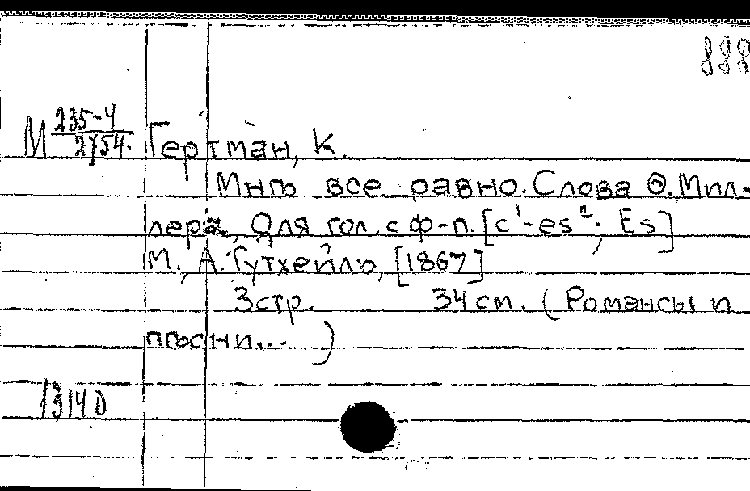 888
М 235-4/2754. Гертман, К.
Мнѣ все равно. Слова Ѳ. Мил-
лера, Для гол. с ф-п. [c'-es²; Es]
М., А. Гутхейль, [1867]
3 стр. 34 см. (Романсы и
пѣсни...)
1314 D